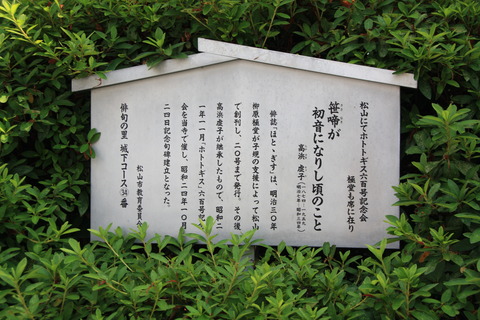 松山にてホトトギス六百号記念会
極堂も席に在り
笹啼が
初音になりし頃のこと
高浜 虚子(一八七四~一九五九 明治七年~昭和三四年)
俳誌「ほとゝぎす」は、明治三〇年
柳原極堂が子規の支援によって松山
で創刊し、二〇号まで発行。その後
高浜虚子が継承したもので、昭和二
一年一一月「ホトトギス」六百号記
会を当寺で催し、昭和二四年一〇月
二四日記念句碑建立となった。
松山市教育委員
俳句の里 城下コース 番